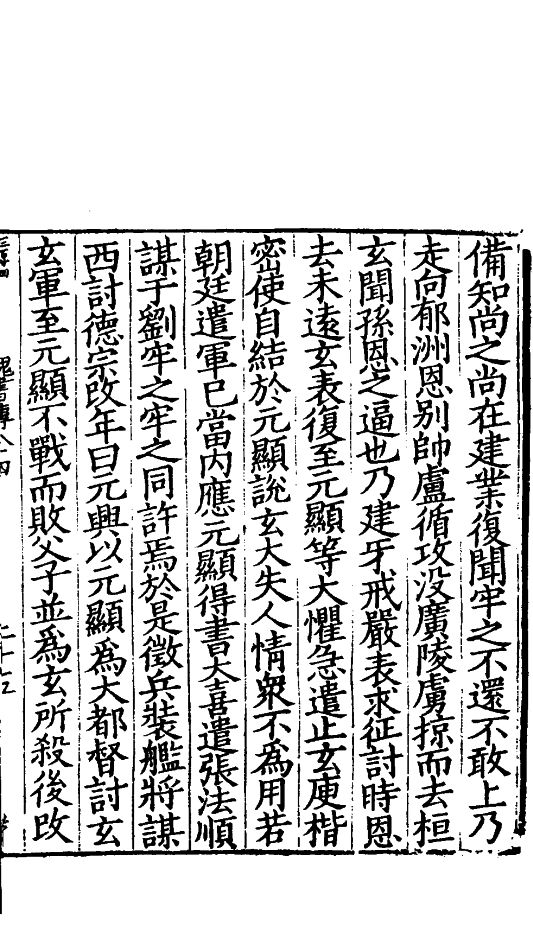 備知尚之尚在建業復聞牢之不還不敢上乃
走向郁洲恩别帥盧循攻没廣陵虜掠而去桓
玄聞孫恩之逼也乃建牙戒嚴表求征討時恩
去未遠玄表復至元顯等大懼急遣止玄庾楷
密使自結於元顯說玄大失人情衆不爲用若
朝廷遣軍巳當内應元顯得書大喜遣張法順
謀于劉牢之牢之同許焉於是徵兵裝艦將謀
西討德宗改年曰元興以元顯爲大都督討玄
玄軍至元顯不戰而敗父子並爲玄所殺後改